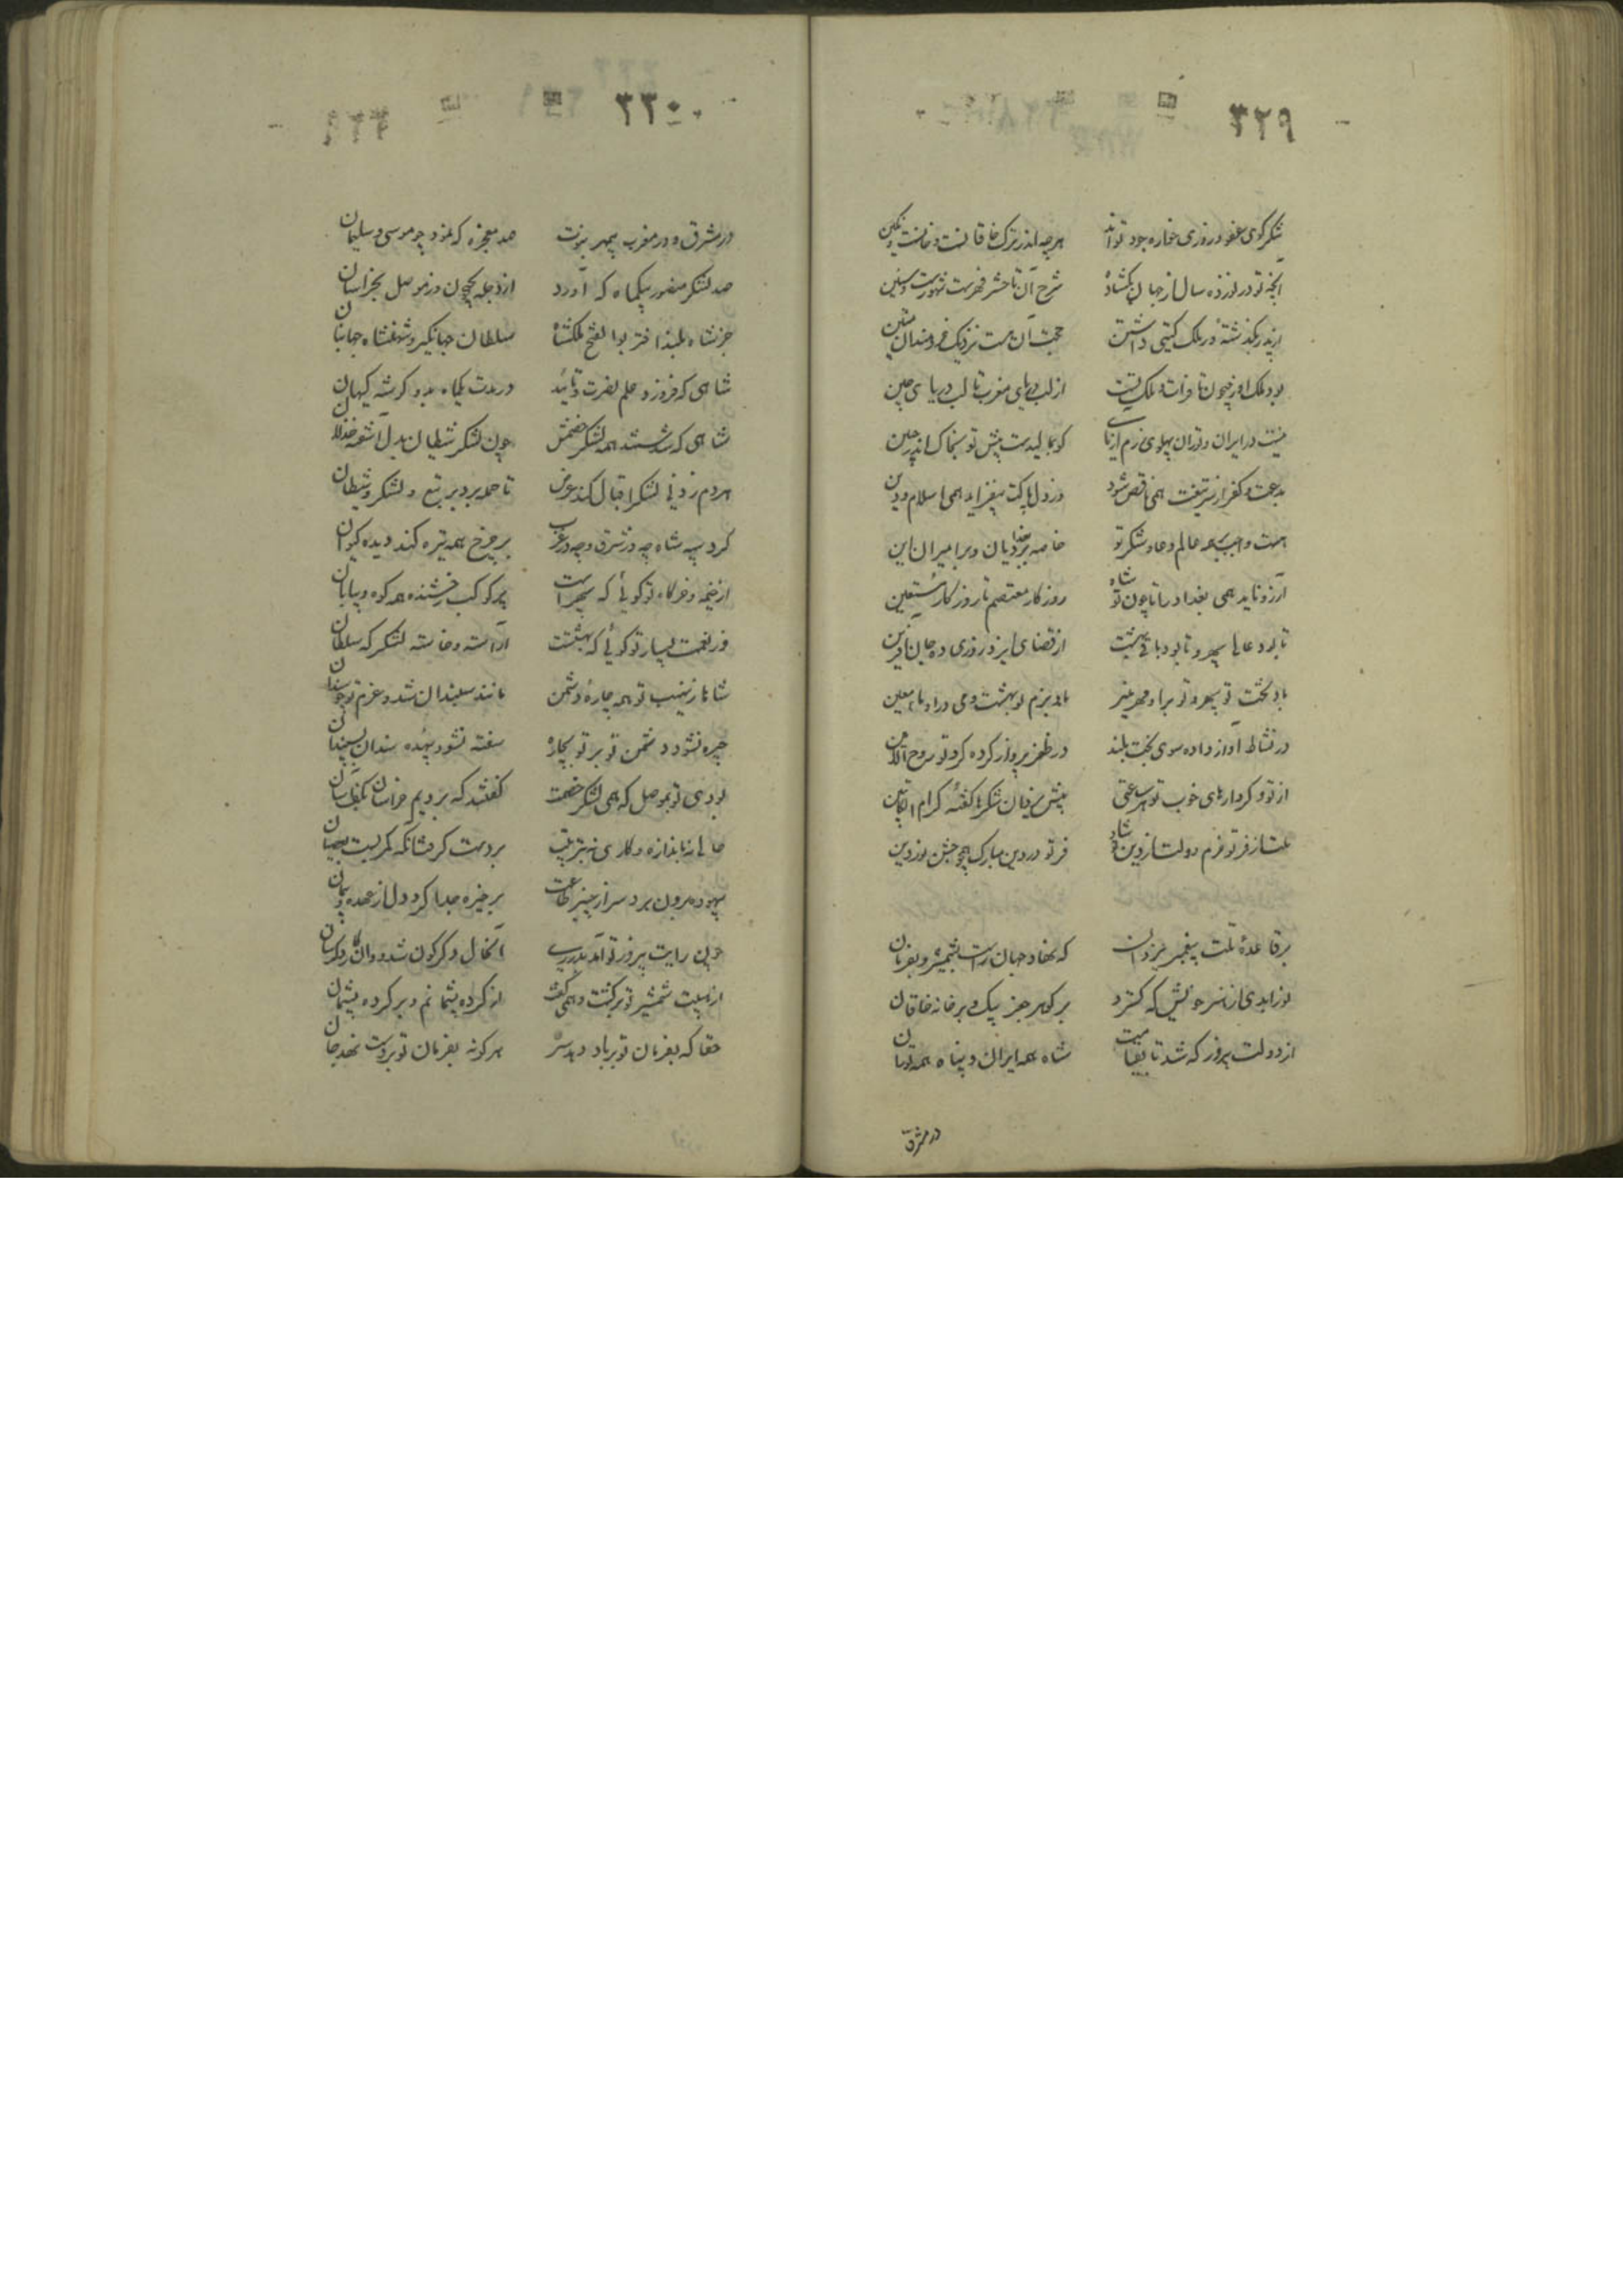 ۳۲۹
شکر گوی عفو و روزی خواره جود تواند هرچه اندر ترک خاقانست و خانست و نگین
آنچه تو در نوزده سال از جهان بگشاده شرح آن تا حشر فهرست شهورست و سنین
از پدر بگذشتهٔ در ملک گیتی داشتن حجت آن هست نزدیک خردمندان متین
بود ملک او ز جیحون تا فرات و ملک تست از لب دریای مغرب تا لب دریای چین
نیست در ایران و توران پهلوی رزم آزمای کو نمالیدست پیش تو بخاک اندر جبین
بدعت و کفر از تیغت همی ناقص شود وز دل پاکت بیفزاید همی اسلام و دین
هست واجب بر همه عالم دعا و شکر تو خاصه بر بغدادیان و بر امیران این
آرزو ناید همی بغداد را تا چون تو شاه روزگار معتصم تا روزگار مستعین
تا بود عالی سپهر و تا بود باقی بهشت از قضای ایزد روزی ده جان آفرین
باد تخت تو سپهر و تو برو مهر منیر باد بزم تو بهشت و می درو ماء معین
در نشاط آواز داده سوی تخت بلند در ظفر پرواز کرده گرد تو روح الامین
از تو و کردارهای خوب تو هر ساعتی پیش یزدان شکرها گفته کرام الکاتبین
ملت از فر تو خرم دولت از دین تو شاد فر تو در دین مبارک همچو جشن فرودین
بر قاعدهٔ ملت پیغمبر یزدان که نهاد جهان راست بشمشیر و بفرمان
از دولت پیروز که شد تا بقیامت شاه همه ایران و پناه همه توران
در مشرق
۳۳۰
در مشرق و در مغرب بی مهر نبوت صد معجزه که نمود چو موسی و سلیمان
صد لشکر منصور بیکماه که آورد از دجله بجیحون و ز موصل بخراسان
جز شاه بلند اختر بوالفتح ملکشاه سلطان جهانگیر و شهنشاه جهانبان
شاهی که فروزد علم نصرت و تایید در مدت یکماه بدو گوشه کیهان
شاهی که شکستند همه لشکر خصمش چون لشکر شیطان بدل آشفته خذلان
هردم زدنی لشکر اقبال کند عرض تا حمله برد بر تبع و لشکر شیطان
گرد سپه شاه چه در شرق و چه در غرب بر چرخ همه تیره کند دیده کیوان
از خیمه و خرگاه تو گوئی که سپهر است پر کوکب رخشنده همه کوه و بیابان
وز نعمت بسیار تو گوئی که بهشتست آراسته و خاسته لشکرگه سلطان
شاها ز نهیب تو همه چارهٔ دشمن مانند سپندان شد و عزم تو چو سندان
چیره نشود دشمن تو بر تو بچاره سفته نشود بیهده سندان بسپندان
بودی تو بموصل که همی لشکر خصمت گفتند که بردیم خراسان
بیهوده برون برد سر از چنبر طاعت بر خیره جدا کرد دل از عهده و پیمان
چون رایت پیروز تو آمد پدیدار آنحال دگرگون شد و وان کار دگرسان
از هیبت شمشیر تو برگشت و همی گفت از کرده پشیمانم و بر کرده پشیمان
حقا که بفرمان تو بر باد دهد سر هر کو نه بفرمان تو بر دست نهد جان